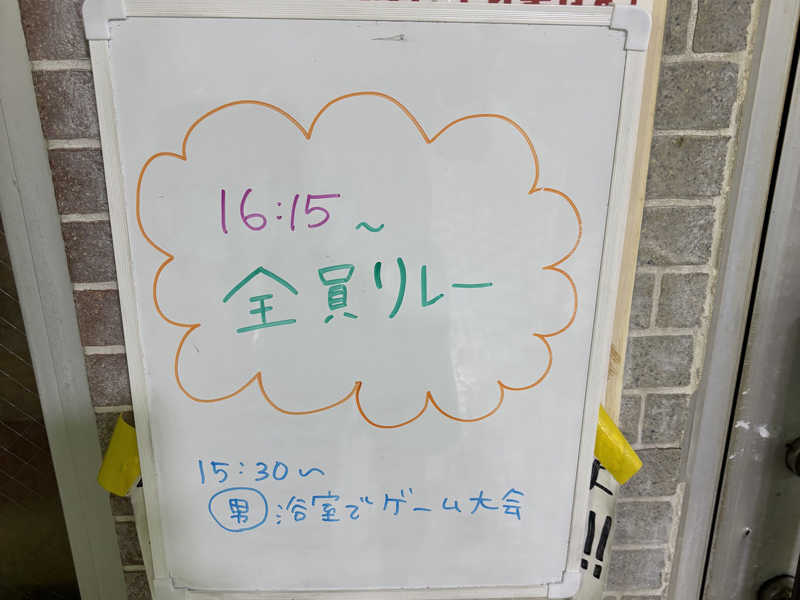 16:15~
全員リレー
15:30~
男 浴室でゲーム大会
!!